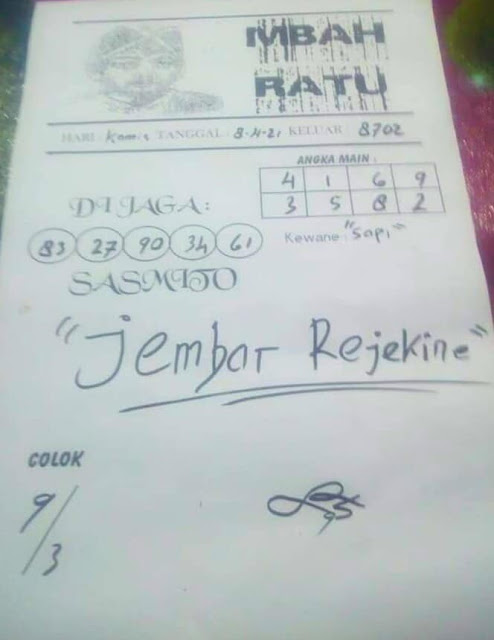 MBAH
RATU
HARI : Kamis TANGGAL : 8-4-21 KELUAR : 8702
ANGKA MAIN :
4 1 6 9
3 5 8 2
DI JAGA :
83 27 90 34 61
Kewane : "Sapi"
SASMITO
"Jembar Rejekine"
COLOK
9/3